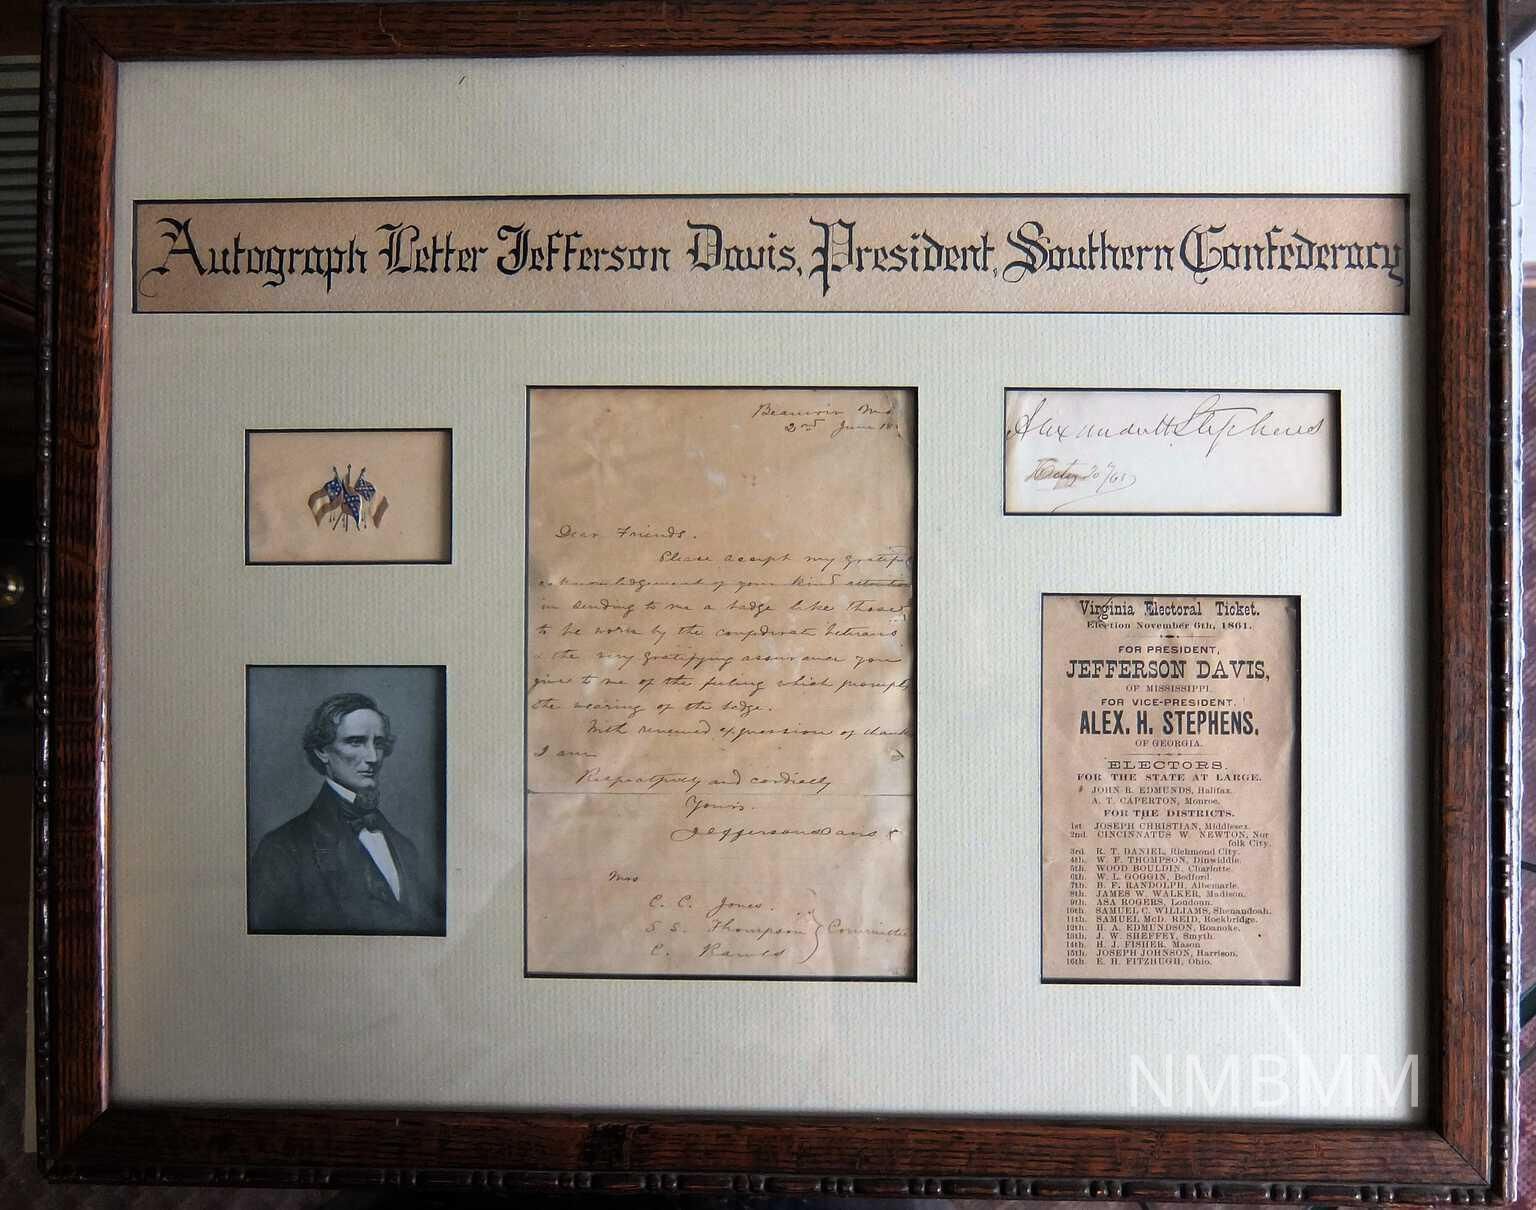 Autograph Letter Jefferson Davis, President, Southern Confederacy
Beauvoir
2nd June 18
Dear Friends.
Please accept my grateful
acknowledgement of your kind attention
in sending to me a badge like those
to be worn by the confederate veterans
& the very gratifying assurance you
give to me of the feeling which prompts
the wearing of the badge.
With renewed expression of thanks
I am
Respectfully and cordially
Yours.
Jefferson Davis
Mrs
C. C. Jones.
S. S. Thompson } Committee
C.
Alexander H Stephens
Virginia Electoral Ticket.
Election November 6th, 1861.
FOR PRESIDENT,
JEFFERSON DAVIS,
OF MISSISSIPPI.
FOR VICE-PRESIDENT.
ALEX. H. STEPHENS.
OF GEORGIA.
ELECTORS.
FOR THE STATE AT LARGE.
JOHN R. EDMUNDS, Halifax.
A. T. CAPERTON, Monroe.
FOR THE DISTRICTS.
1st. JOSEPH CHRISTIAN, Middlesex.
2nd. CINCINNATUS W. NEWTON, Nor
folk City.
3rd. R. T. DANIEL, Richmond City.
4th. W. F. THOMPSON, Dinwiddie.
5th. WOOD BOULDIN, Charlotte.
6th. W. L. GOGGIN, Bedford.
7th. B. F. RANDOLPH, Albemarle.
8th. JAMES W. WALKER, Madison.
9th. ASA ROGERS, Loudoun.
10th. SAMUEL C. WILLIAMS, Shenandoah.
11th. SAMUEL McD. REID, Rockbridge.
12th. H. A. EDMUNDSON, Roanoke.
13th. J. W. SHEFFEY, Smyth.
14th. H. J. FISHER, Mason
15th. JOSEPH JOHNSON, Harrison.
16th. E. H. FITZHUGH, Ohio.
NMBMM